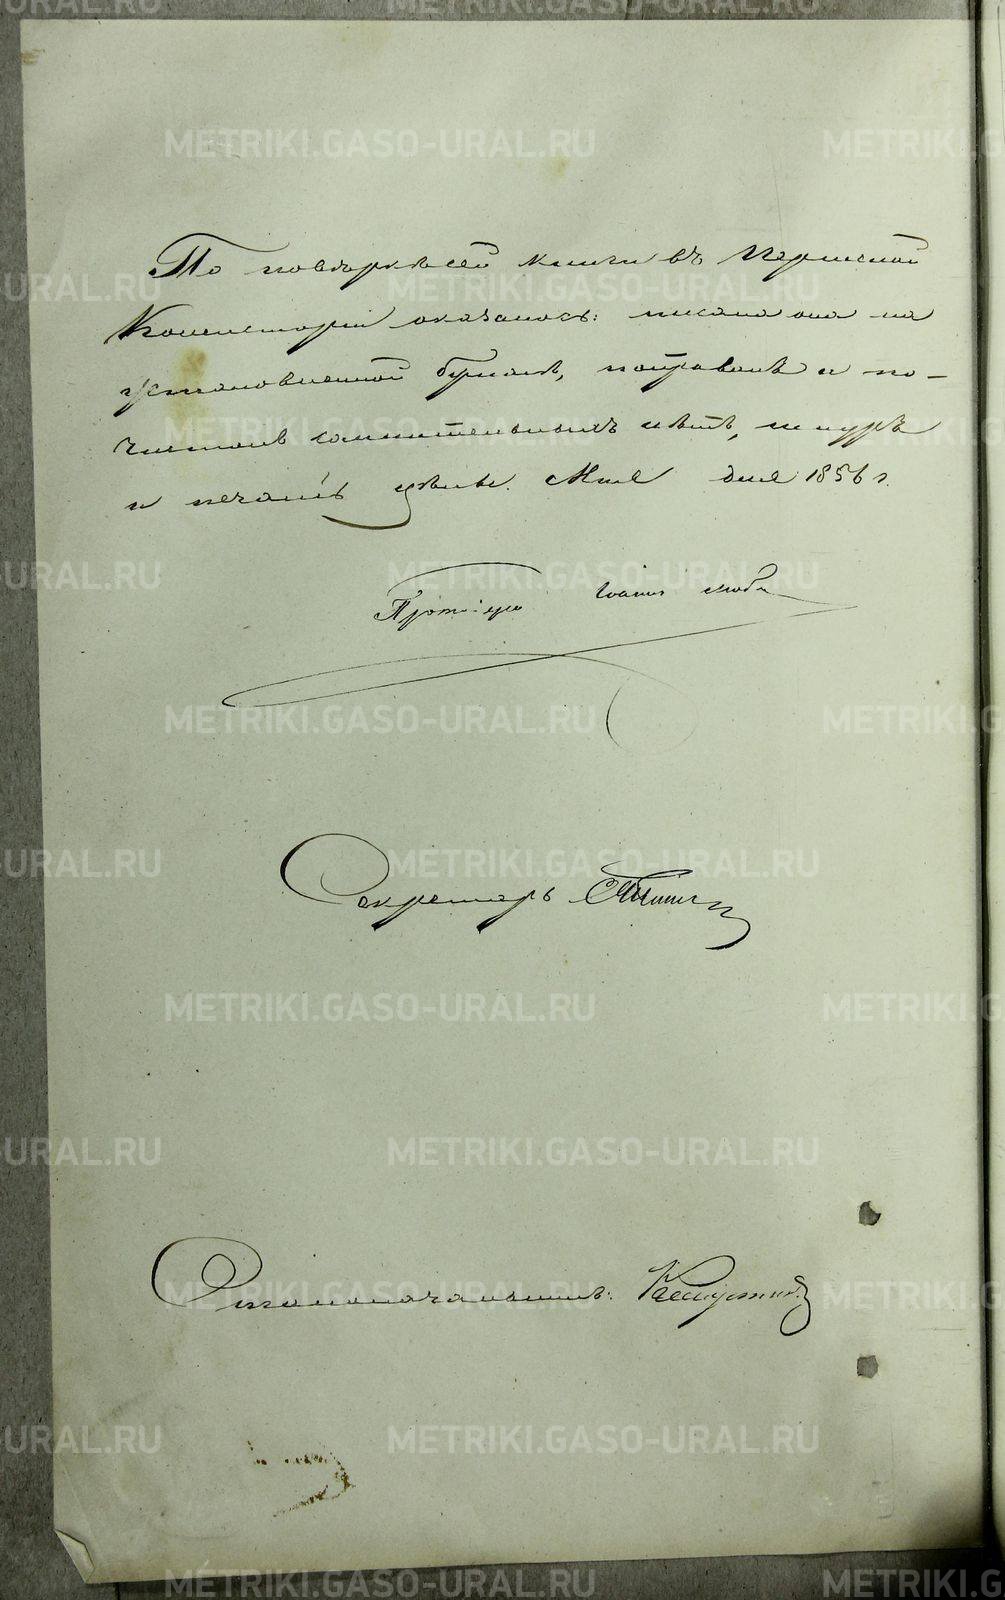 По повѣркѣ сей книги въ Пермской
Консисторіи оказалось: писана она на
установленной бумагѣ, поправокъ и по-
чистокъ сомнительныхъ нѣтъ, шнуръ
и печать цѣлы. Мая дня 1856 г.
Протоіерей Іоаннъ
Секретарь
Столоначальникъ: